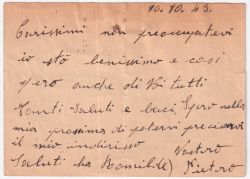 10.10.43.
Carissimi non preoccupatevi
io sto benissimo e così
spero anche di Voi tutti
Tanti saluti e baci spero nella
mia prossima di potervi precisarvi
il mio indirisso
Saluti ha Romilde) Vostro
Pietro